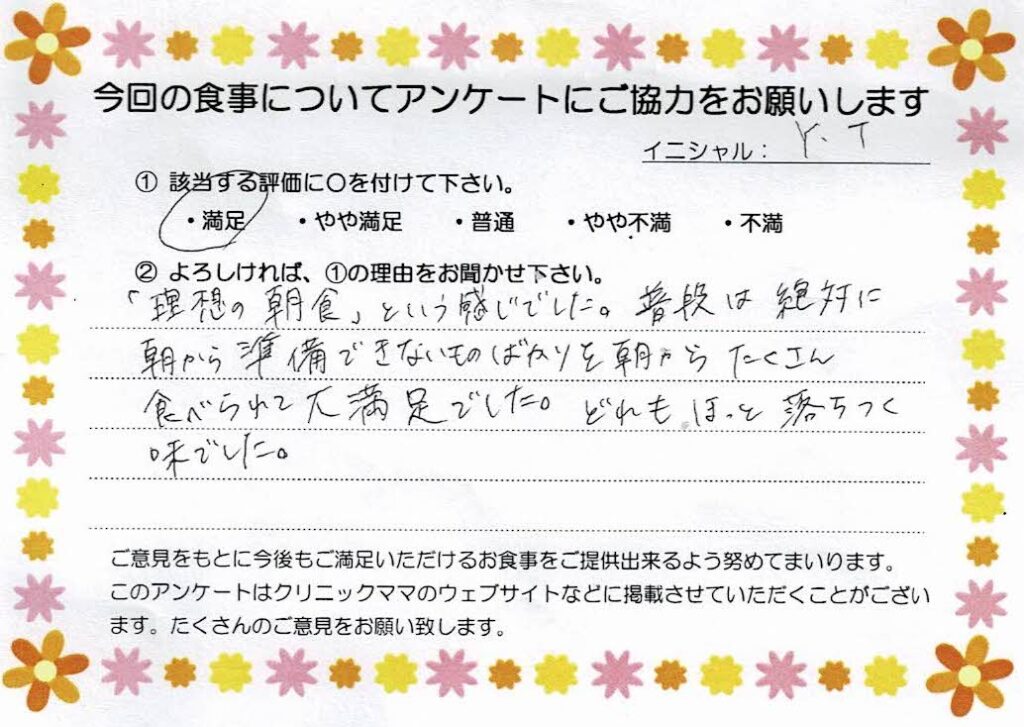 今回の食事についてアンケートにご協力をお願いします
イニシャル： Y. T
① 該当する評価に〇を付けて下さい。
・満足 ・やや満足 ・普通 ・やや不満 ・不満
② よろしければ、①の理由をお聞かせ下さい。
「理想の朝食」という感じでした。普段は絶対に
朝から準備できないものばかりを朝からたくさん
食べられて大満足でした。どれもほっと落ちつく
味でした。
ご意見をもとに今後もご満足いただけるお食事をご提供出来るよう努めてまいります。
このアンケートはクリニックママのウェブサイトなどに掲載させていただくことがござい
ます。たくさんのご意見をお願い致します。